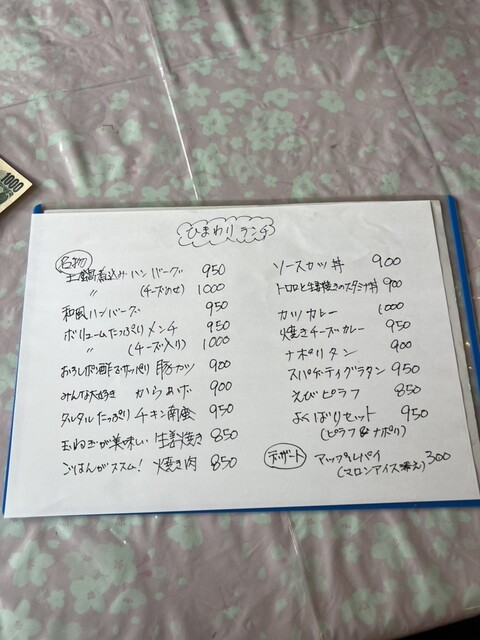 ひまわりランチ
名物
土鍋煮込みハンバーグ 950
〃 (チーズのせ) 1000
和風ハンバーグ 950
ボリュームたっぷりメンチ 950
〃 (チーズ入り) 1000
おろしポン酢でサッパリ 豚カツ 900
みんな大好き からあげ 900
タルタルたっぷり チキン南蛮 950
玉ねぎが美味しい 生姜焼き 850
ごはんがススム! 焼き肉 850
ソースカツ丼 900
トロロと生姜焼きのスタミナ丼 900
カツカレー 1000
焼きチーズカレー 950
ナポリタン 900
スパゲティグラタン 950
えびピラフ 850
よくばりセット 950
(ピラフ&ナポリ)
デザート アップルパイ 300
(マロンアイス添え)
1000